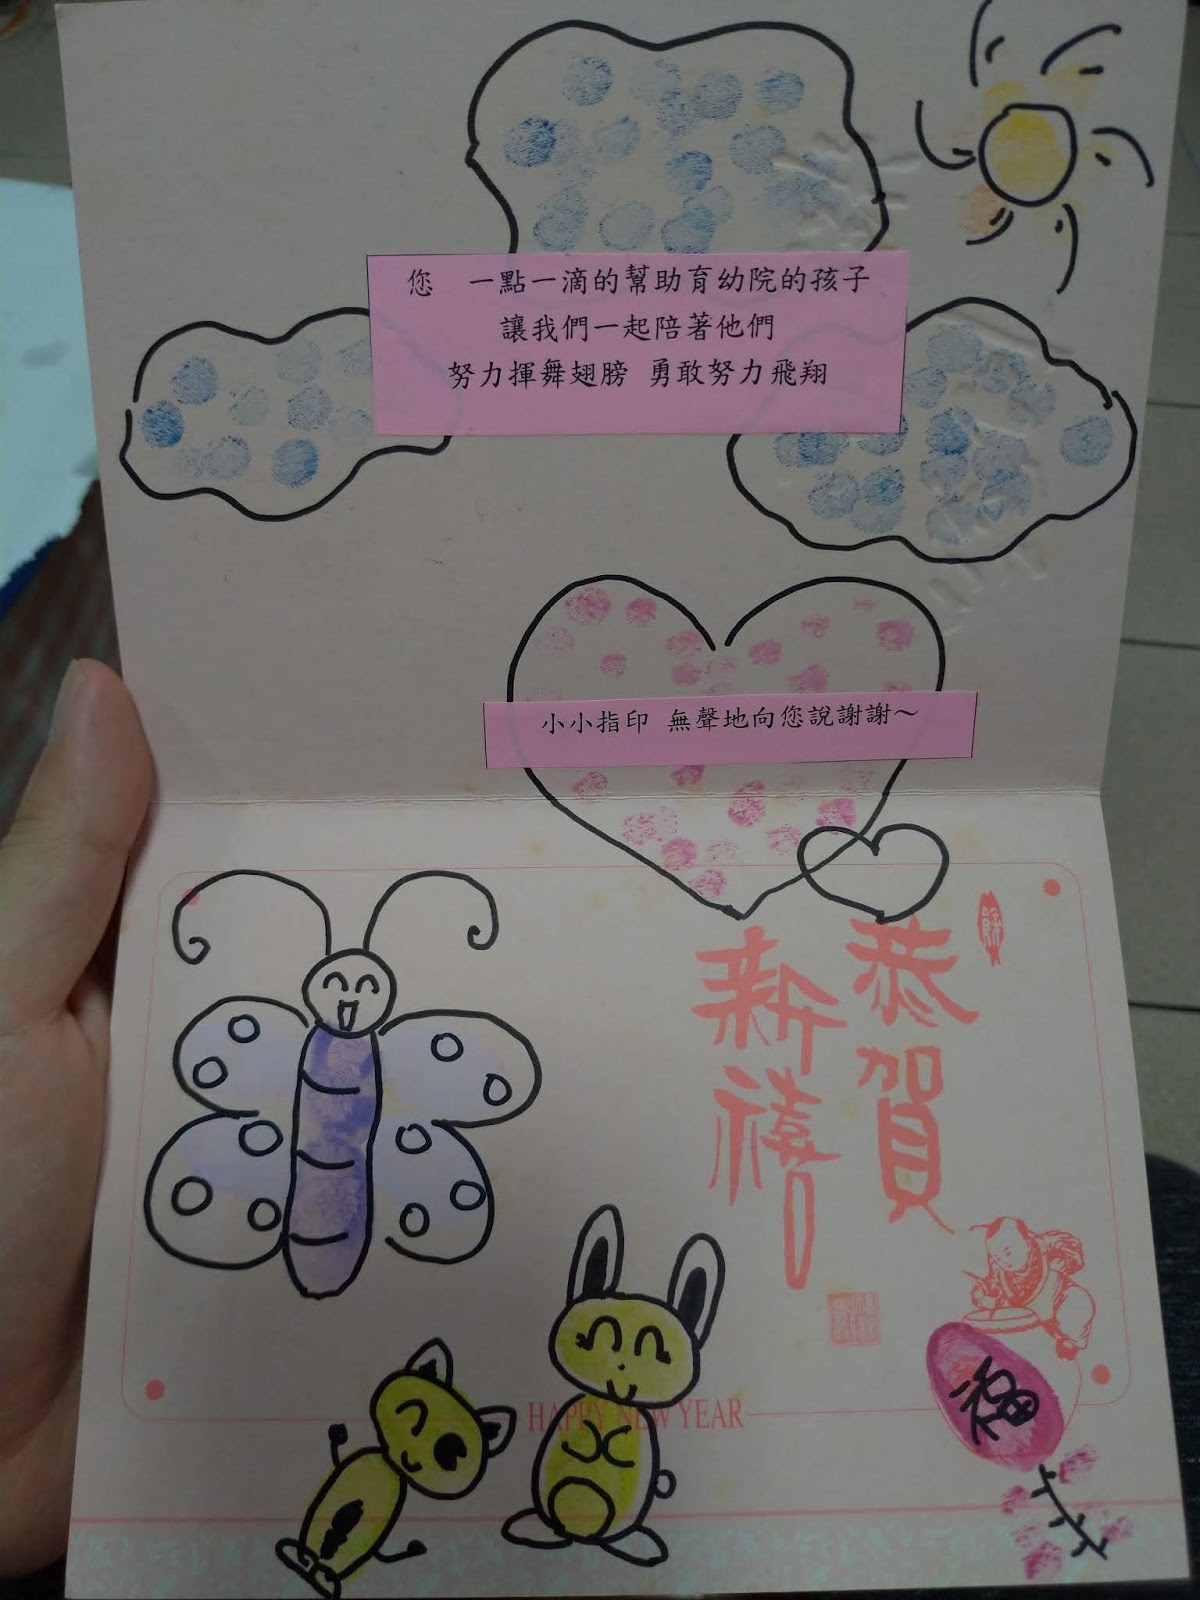 您　一點一滴的幫助育幼院的孩子
讓我們一起陪著他們
努力揮舞翅膀 勇敢努力飛翔
小小指印 無聲地向您說謝謝～
恭賀
新禧
HAPPY NEW YEAR
福